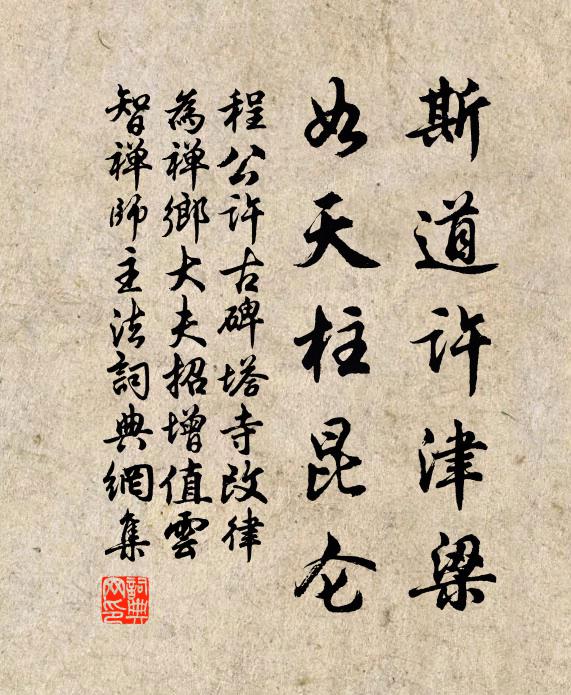 斯道許津梁
如天柱昆仑
程公許古碑塔寺改律
為禅鄉大夫招增值雲
智禅師主法詞典網集
詞典網印